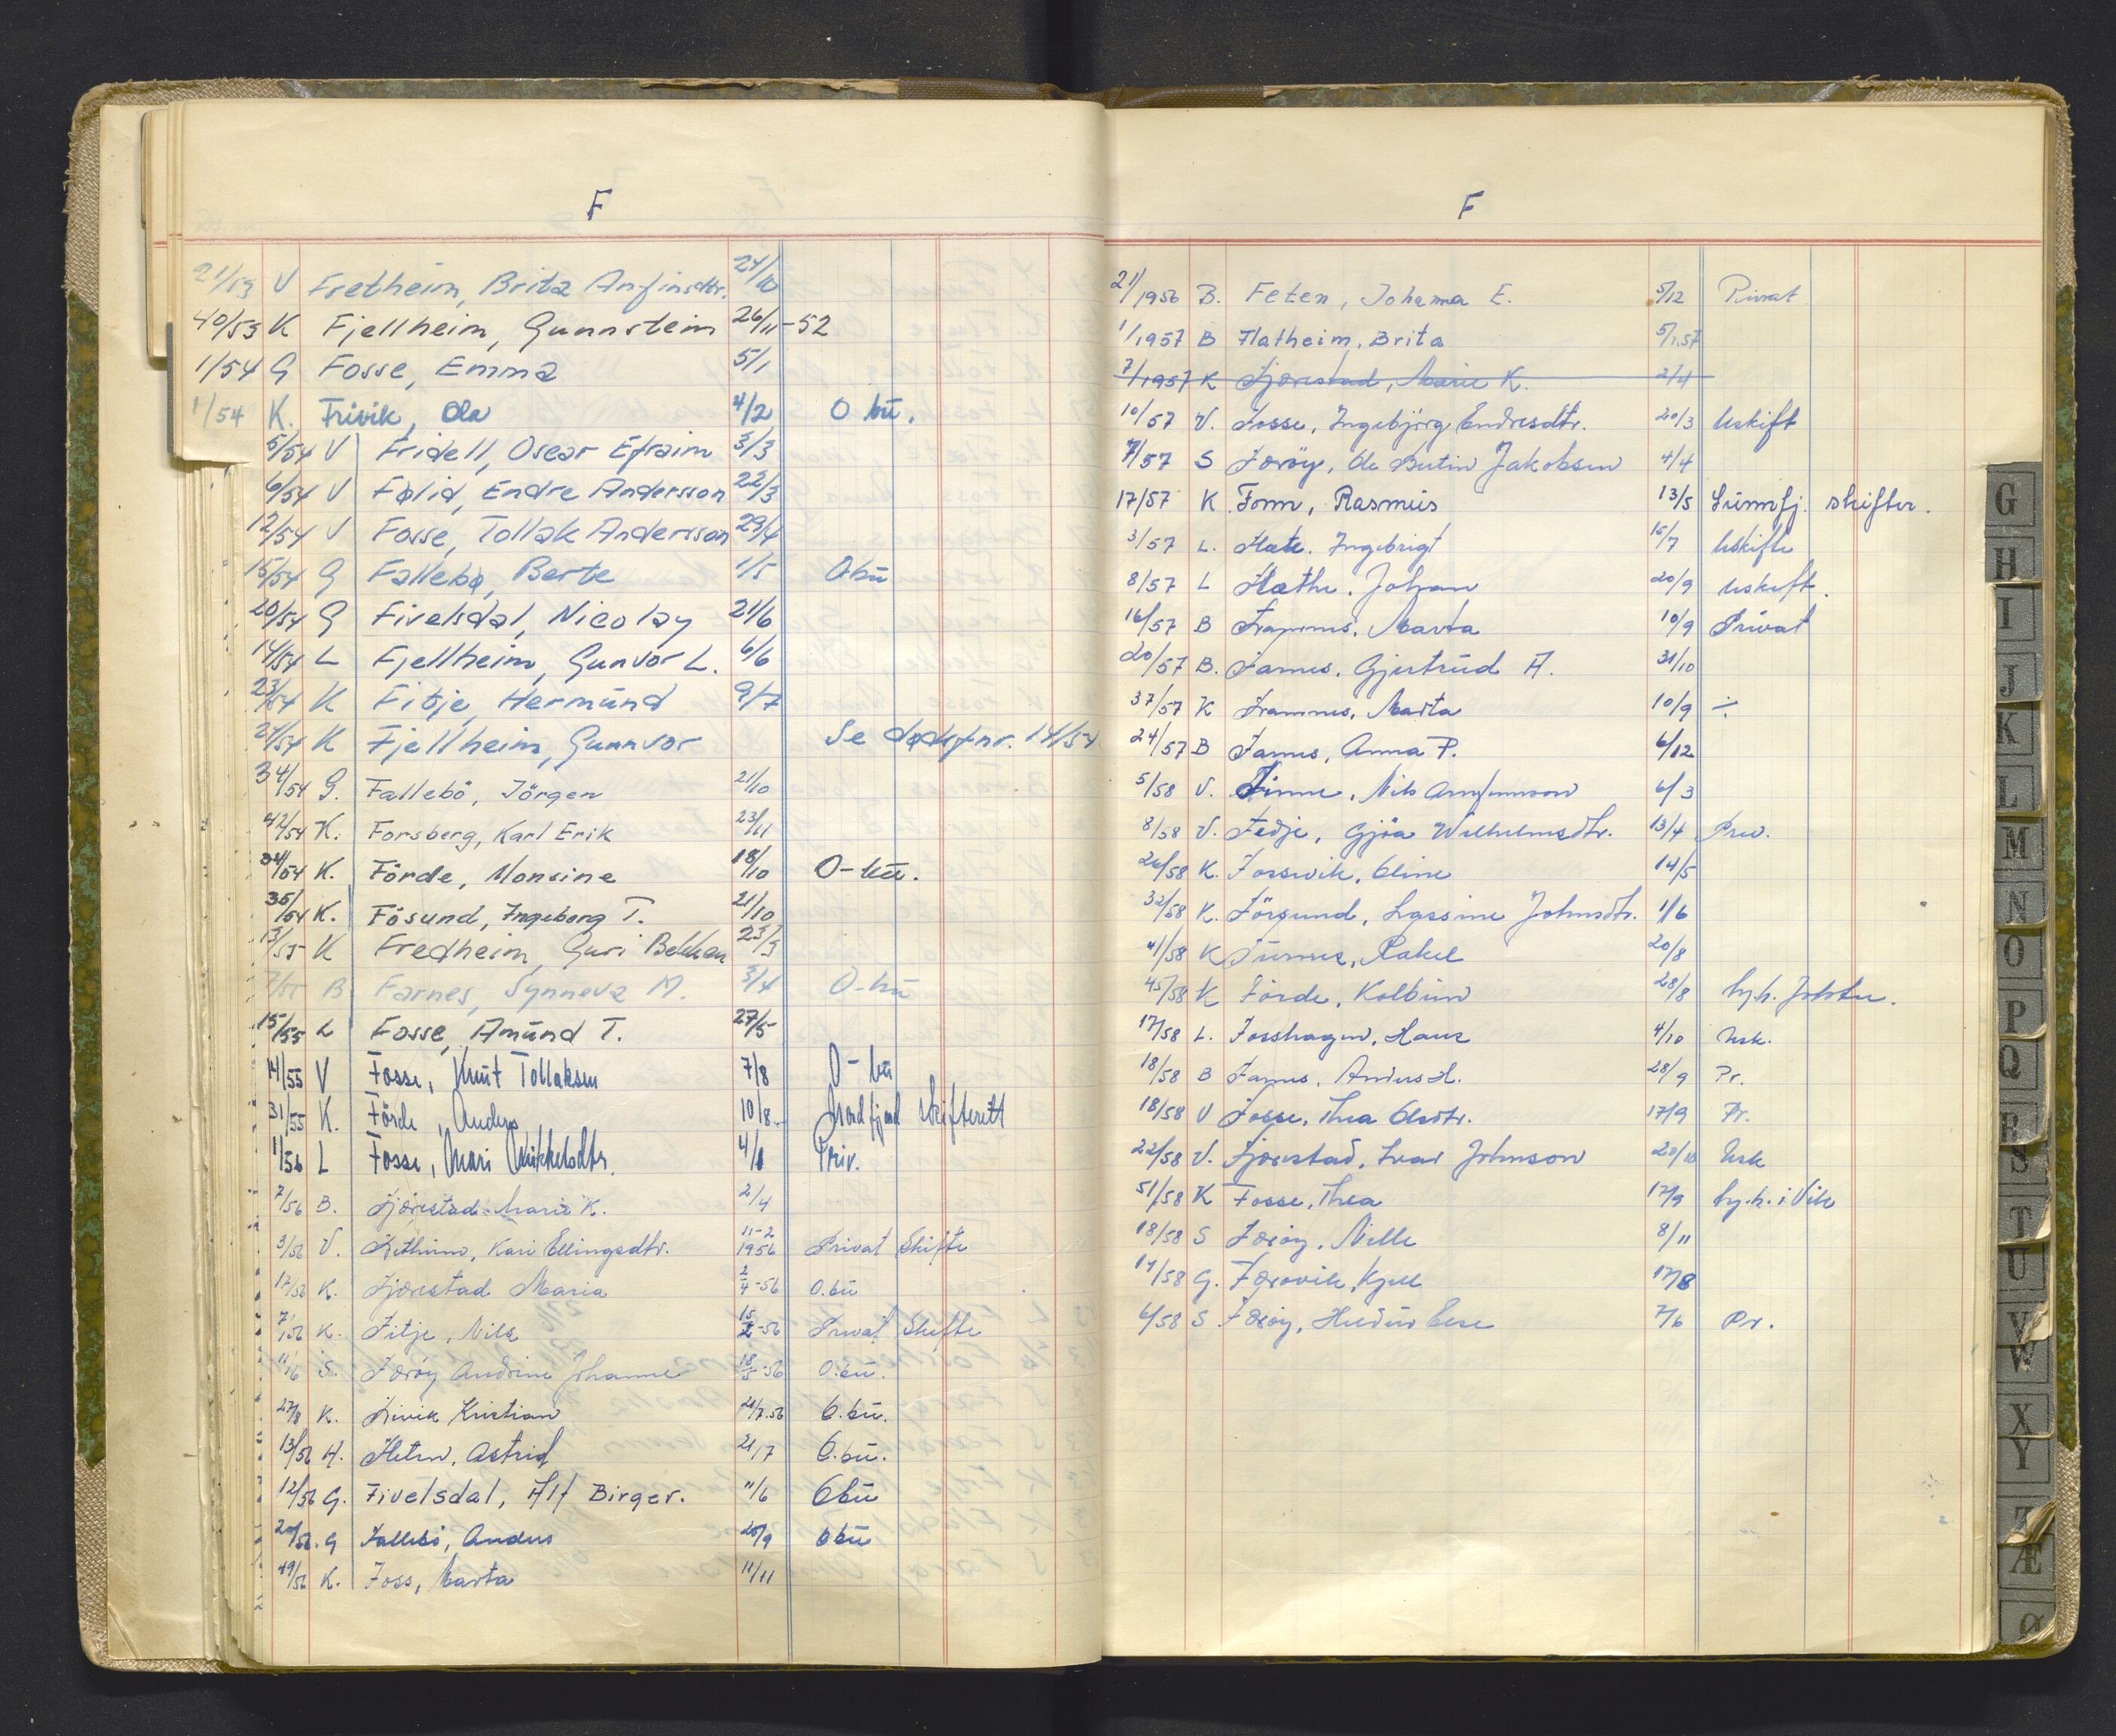 F
21/53 V Fretheim, Brita Anfinsdtr. 24/10
40/53 K Fjellheim, Gunnstein 26/11-52
1/54 G Fosse, Emma 5/1
1/54 K. Frivik, Ola 4/2 O bŭ.
5/54 V Fridell, Oscar Efraim 3/3
6/54 V Følid, Endre Andersson 22/3
12/54 V Fosse, Tollak Andersson 29/4
15/54 G Fallebø, Berte 1/5 Obŭ
20/54 G Fivelsdal, Nicolay 21/6
14/54 L Fjellheim, Gunvor L. 6/6
23/54 K Fitje, Hermŭnd 9/7
24/54 K Fjellheim, Gunnvor Se dødsf nr. 14/54
34/54 G. Fallebö, Jörgen 21/10
42/54 K. Forsberg, Karl Erik 23/11
34/54 K. Förde, Monsine 18/10 O-bŭ.
35/54 K. Fösund, Ingeborg T. 21/10
13/55 K Fredheim, Guri Bekken 23/3
7/55 B Farnes, Synneva M. 3/4 O-bŭ
15/55 L Fosse, Amŭnd T. 27/5
14/55 V Fosse, Knŭt Tollaksen 7/8 O-bŭ
31/55 K. Förde, Anders 10/8 Nordfjord skifterett
1/56 L Fosse, Mari Mikkelsdtr. 4/1 Priv.
7/56 B. Fjærestad Marie K. 2/4
3/56 V. Fretheim, Kari Ellingsdtr. 11-2 1956 Privat Skifte
17/56 K. Fjærestad Maria 2/4-56 O.bŭ
7/56 K. Fitje, Nils 15/2-56 Privat Skifte
11/56 S. Færöy Andrine Johanne 18/5-56 O.bŭ.
27/8 K. Frivik Kristian 21/7.56 O.bŭ.
13/56 H. Fleten, Astrid 21/7 O.bŭ.
12/56 G. Fivelsdal, Alf Birger. 11/6 Obŭ
20/56. G Fallebö, Anders 25/9 Obŭ
49/56 K. Foss, Marta 11/11
F
21/1956 B. Feten, Johanna E. 5/12 Privat
1/1957 B Flatheim, Brita 5/1.57
7/1957 K Fjærestad, Marie K. 2/4
10/57 V. Fosse, Ingebjörg Endresdtr. 20/3 Uskift
7/57 S Færöy, Ole Bertin Jakobsen 4/4
17/57 K Fonn, Rasmŭs 13/5 Sŭnnfj. skifter.
3/57 L. Flæte. Ingebrigt 15/7 Uskifte
8/57 L Flæthe, Johan 20/9 Uskift.
16/57 B Framnes, Marta 10/9 Privat
20/57 B. Farnes, Gjertrŭd A. 31/10
37/57 K Framnes, Marta 10/9 ÷
24/57 B Farnes, Anna P. 6/12
5/58 V. Finne, Nils Arnfinnson 6/3
8/58 V. Fedje, Gjöa Wilhelmsdtr. 13/4 Priv.
26/58 K. Forsvik, Oline 14/5
32/58 K. Försund, Lassine Johnsdtr. 1/6
41/58 K Fŭrnes, Rakel 20/8
45/58 K Förde, Kolbein 28/8 Sy.h. Jölster.
17/58 L. Fosshagen, Hans 4/10 Usk.
18/58 B Farnes, Anders H. 28/9 Pr.
18/58 V Fosse, Thea Olsdtr. 17/9 Pr.
22/58 V. Fjærestad, Ivar Johnson 20/10 Usk
51/58 K Fosse, Thea 17/9 Sy.h. i Vik
18/58 S Færöy, Nille 8/11
17/58 G. Færovik, Kjell 17/8
6/58 S Færöy, 7/6 Pr.
G
H
I
J
K
L
M
N
O
P
Q
R
S
T
U
V
W
X
Y
Z
Æ
Ø